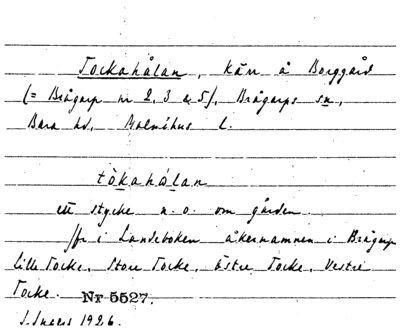 Tockahålan, kärr å Borggård
(= Brågarp nr 2, 3 & 5), Brågarps sn,
Bara hd, Malmöhus l.
tòkahálan
ett stycke n. o. om gården.
Jfr i Landeboken åkernamnen i Brågarp
Lille Tocke, Store Tocke, Östre Tocke, Vestre
Tocke. Nr 5527.
S. Ingers 1926.